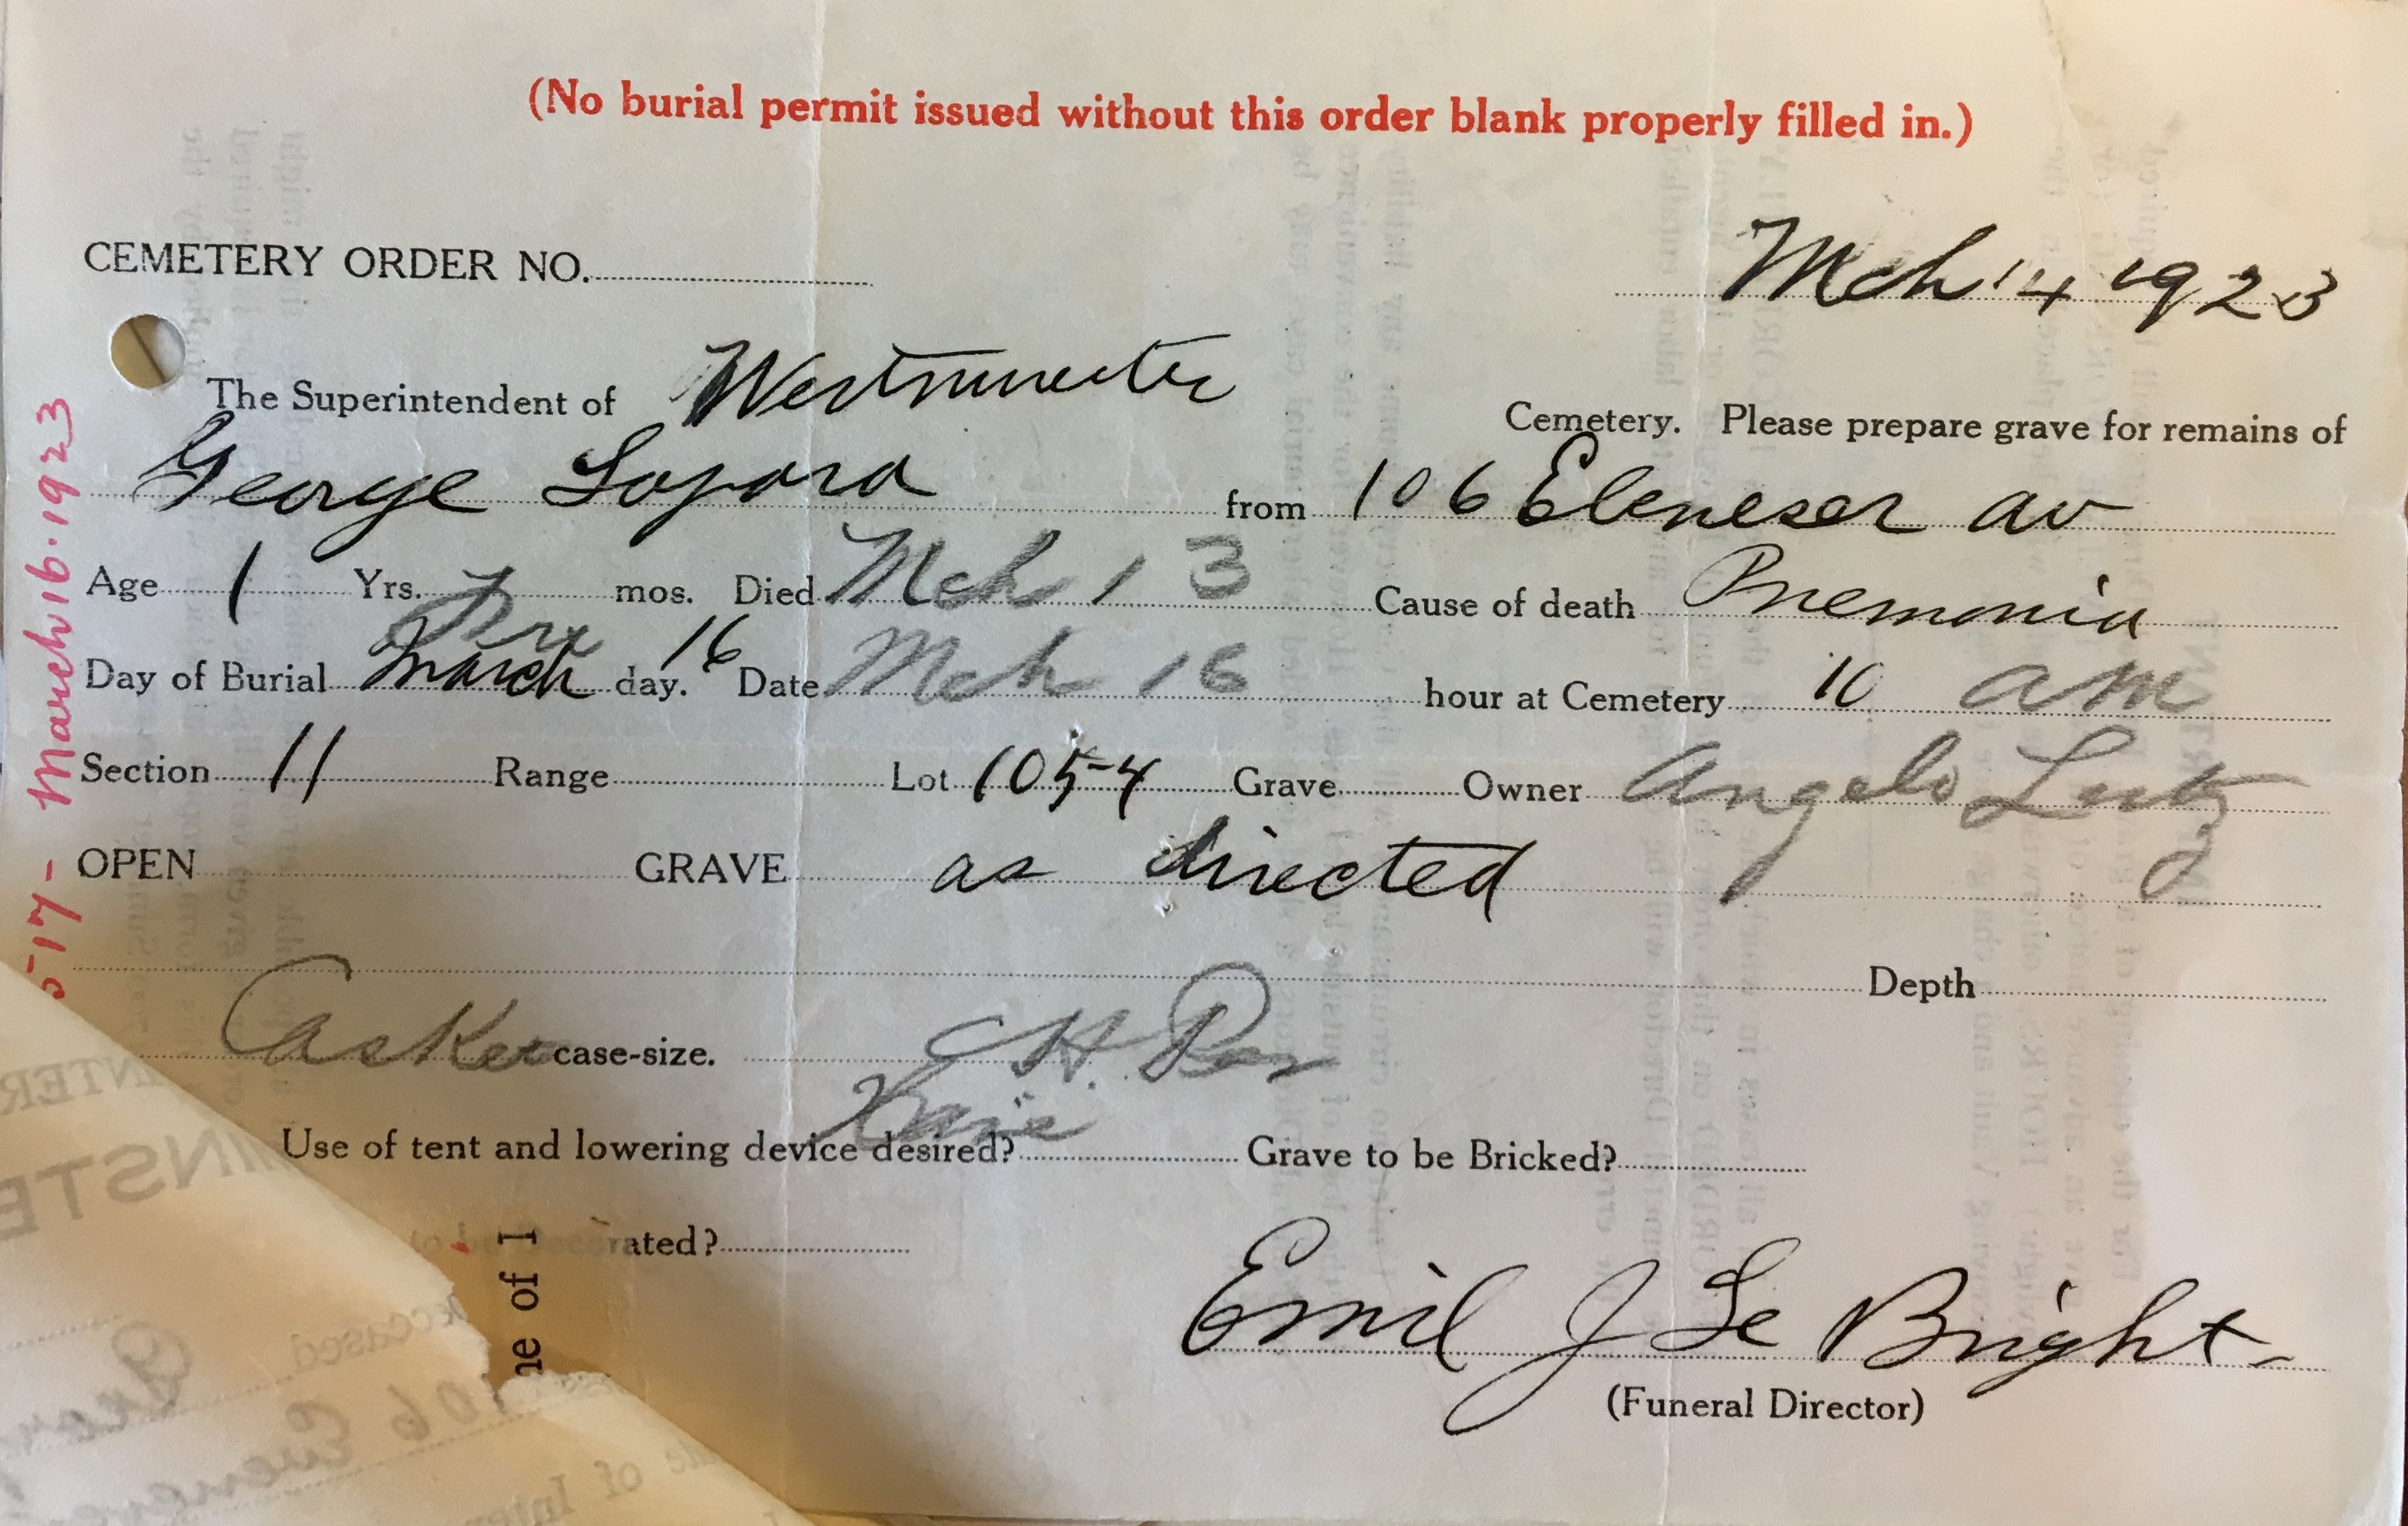 (No burial permit issued without this order blank properly filled in.)
CEMETERY ORDER NO.
Mch 14 1923
The Superintendent of Westminster Cemetery. Please prepare grave for remains of
George Lopora from 106 Ebeneser av
Age 1 Yrs. mos. Died Mch 13 Cause of death Pnemonia
Fri
Day of Burial March day. 16 Date Mch 16 hour at Cemetery 10 am
Section 11 Range Lot 105-4 Grave Owner Angelo Lutz
OPEN GRAVE as directed
Depth
Casket case-size. C H.
Use of tent and lowering device desired? Grave to be Bricked?
ated?
Emil J Le Bright
(Funeral Director)
517- March 16. 1923
ne of 1
INTER
INSTE
Deceased
106
of Inter